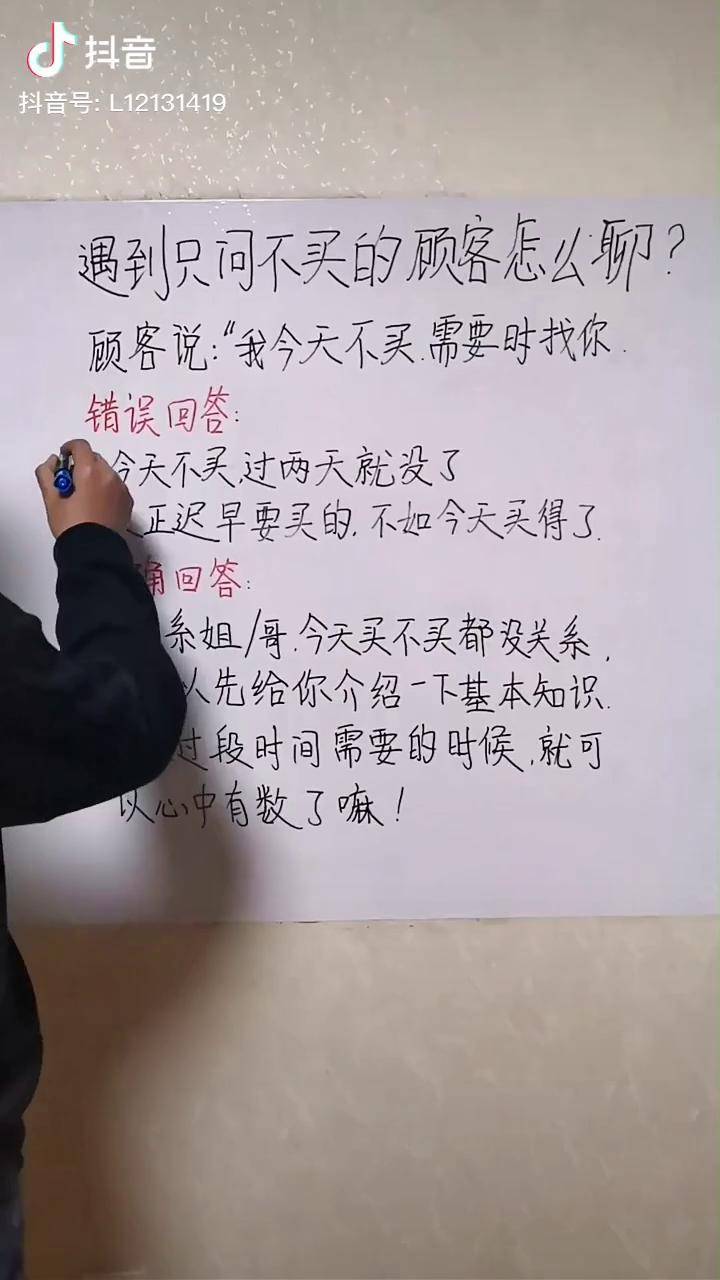 抖音
抖音号: L12131419
遇到只问不买的顾客怎么聊?
顾客说:“我今天不买.需要时找你.
错误回答:
今天不买,过两天就没了
正迟早要买的.不如今天买得了.
确回答:
系姐/哥.今天买不买都没关系,
以先给你介绍一下基本知识.
过段时间需要的时候,就可
以心中有数了嘛!